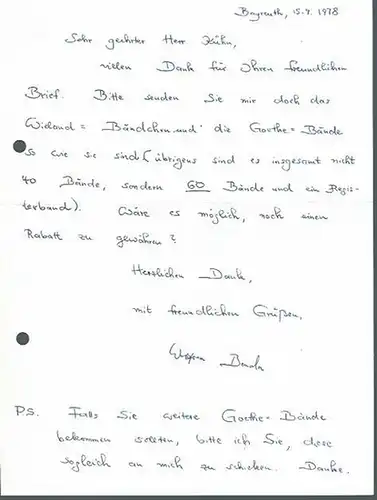 Bayreuth, 15.9.1978
Sehr geehrter Herr Kühn,
vielen Dank für Ihren freundlichen
Brief. Bitte senden Sie mir doch das
Wieland=Bändchen und die Goethe=Bände
so wie sie sind (übrigens sind es insgesamt nicht
40 Bände, sondern 60 Bände und ein Regis-
terband). Wäre es möglich, noch einen
Rabatt zu gewähren?
Herzlichen Dank,
mit freundlichen Grüßen,
P.S. Falls Sie weitere Goethe=Bände
bekommen sollten, bitte ich Sie, diese
sogleich an mich zu schicken. Danke.